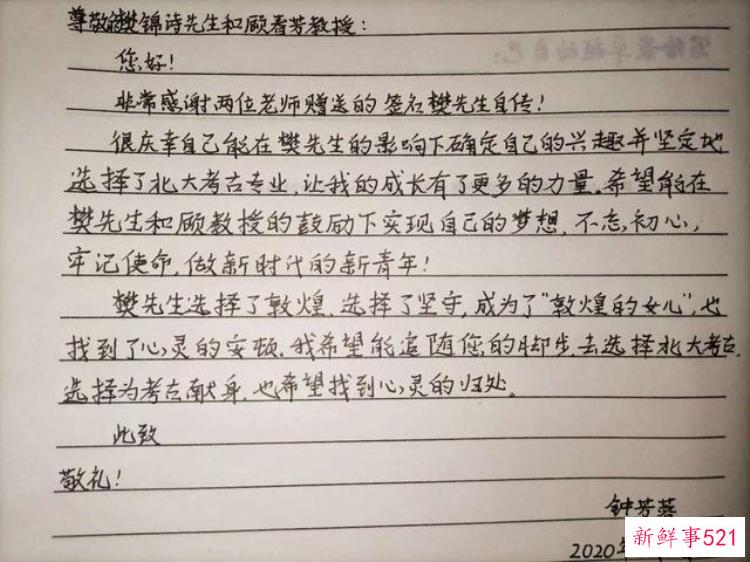 尊敬的樊锦诗先生和顾春芳教授：
您好！
非常感谢两位老师赠送的签名樊先生自传！
很庆幸自己能在樊先生的影响下确定自己的兴趣并坚定地
选择了北大考古专业，让我的成长有了更多的力量。希望能在
樊先生和顾教授的鼓励下实现自己的梦想，不忘初心，
牢记使命，做新时代的新青年！
樊先生选择了敦煌，选择了坚守，成为了“敦煌的女儿”，也
找到了心灵的安顿。我希望能追随您的脚步，去选择北大考古，
选择为考古献身，也希望找到心灵的归处。
此致
敬礼！
钟芳蓉
2020年
新鲜事521